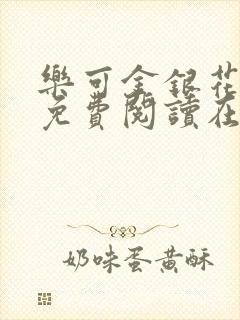 樂可金銀花
免費閱讀在
奶味蛋黃酥